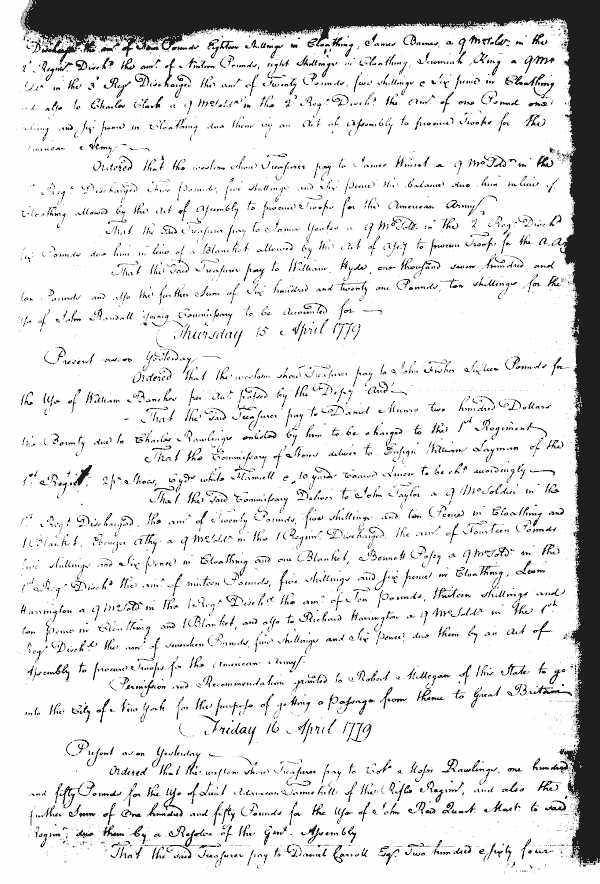 Discharged the amt of Two Pounds Eighteen Shillings in Cloathing, James Barnes, a 9 Mo Soldr in the
2d Regimt Dischd the amt of Nineteen Pounds, eight Shillings in Cloathing, Jeremiah King a 9 Mo
Soldr in the 3d Regt Discharged the amt of Twenty Pounds, five shillings & Six pence in Cloathing
and also to Charles Clark a 9 Mo Soldr in the 2d Regt Dischd the amt of one Pound one
and Six pence in Cloathing due them by an Act of Assembly to procure Troops for the
American Army
Ordered that the western shore Treasurer pay to James a 9 Mo Soldr in the
Regt Discharged, Five Pounds, five shillings and Six pence the balance due him in lieu of
Cloathing allowed by the Act of Assembly to procure Troops for the American Army.
That the said Treasurer pay to James Yeates a 9 Mo Soldr in the 2d Regt Dischd
Six Pounds due him in lieu of a Blanket allowed by the Act of Assy to procure Troops for the A. A
That the said Treasurer pay to William Hyde, one thousand seven hundred and
ten Pounds and also the further Sum of Six hundred and twenty one Pounds, ten shillings for the
Use of John Randall Young Commissary to be accounted for
Thursday 15 April 1779
Present as on Yesterday
Ordered that the western shore Treasurer pay to John Fisher Sixteen Pounds for
the Use of William Bancher per Act passed by the Depy Audr
That the said Treasurer pay to Daniel Munro two hundred Dollars
the Bounty due to Charles Rawlings enlisted by him to be charged to the 1st Regiment
That the Commissary of Stores deliver to Ensign William Layman of the
1st Regimt, 2 pr Shoes, 6 yds white Flannell & 10 yards Linen to be chd accordingly
That the said Commissary Deliver to John Taylor a 9 Mo Soldier in the
1st Regt Discharged, the amt of Twenty Pounds, five shillings and ten Pence in Cloathing and
1 Blanket, Ebenezer Athy a 9 Mo Soldr in the 1 Regimt Discharged, the amt of Fourteen Pounds
five shillings and Six pence in Cloathing and one Blanket, Bennett Posey a 9 Mo Soldr in the
1st Regt Dischd the amt of nineteen Pounds, five Shillings and six pence in Cloathing, Leven
Harrington a 9 Mo Soldr in the 1 Regt Dischd the amt of Ten Pounds, thirteen shillings and
ten pence in Cloathing and 1 Blanket, and also to Richard Harrington a 9 Mo Soldr in the 1st
Regt Dischd the amt of seventeen Pounds, five Shillings and Six pence, due them by an Act of
Assembly to procure Troops for the American Army.
Permission and Recommendation granted to Robert Millegan of this State to go
into the City of New York for the purpose of getting a Passage from thence to Great Britain
Friday 16 April 1779
Present as on Yesterday
Ordered that the western shore Treasurer pay to Colo Moses Rawlings, one hundred
and fifty Pounds for the Use of Lieut Adamson Tannehill of the Rifle Regimt, and also the
further Sum of One hundred and fifty Pounds for the Use of John Quart. Mastr to said
Regimt, due them by a Resolve of the Genl Assembly
That the said Treasurer pay to Daniel Carroll Esqr Two hundred & Sixty four